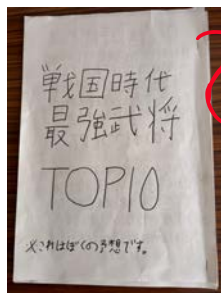 戦国時代
最強武将
TOP10
※これはぼくの予想です。